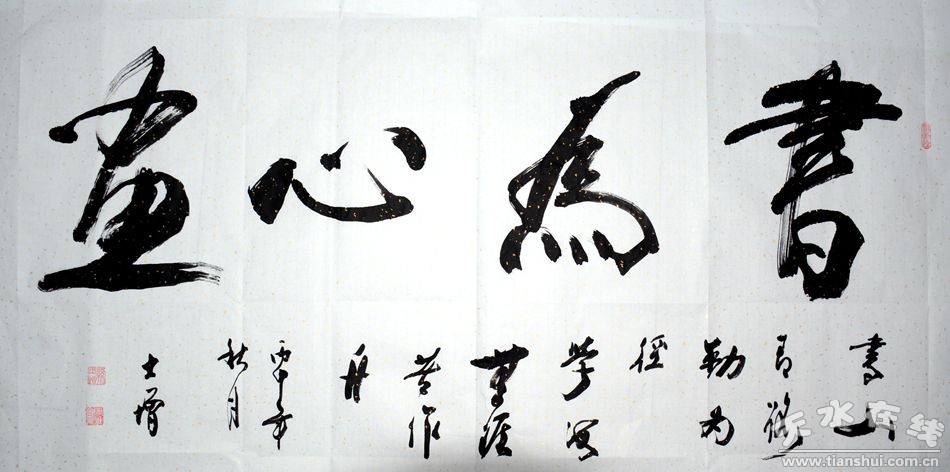 書為心畫
書山
有路
勤为
徑
学海
無涯
苦作
舟
丙申年
秋月
士增
天水在线
www.tianshui.com.cn